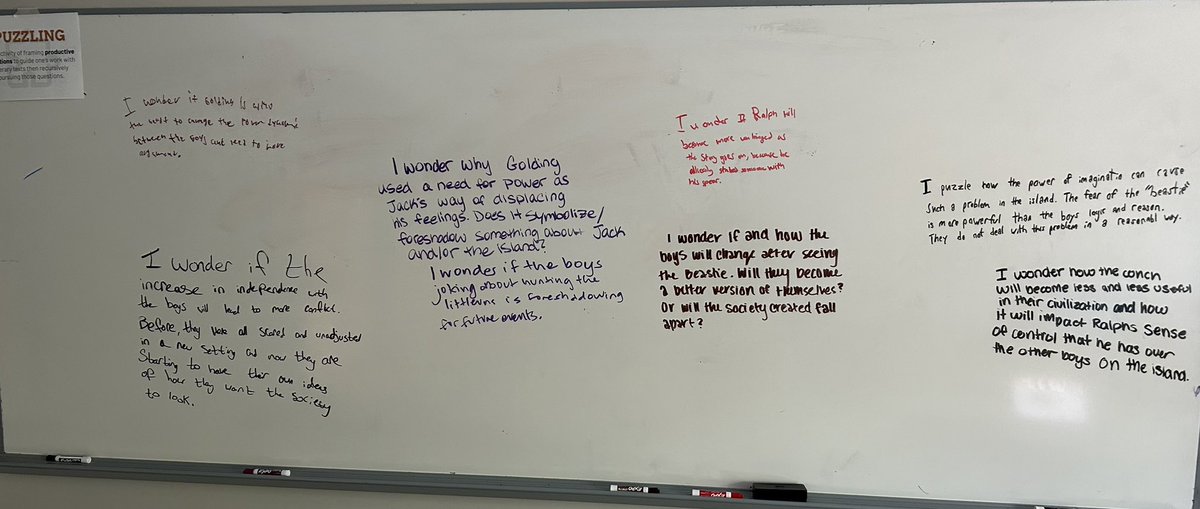 PUZZLING
ctivity of framing productive
tions to guide one's work with
erary texts then recursively
pursuing those questions.
I wonder if Golding is
the want to change the power
between the boys and need to have
argument.
I wonder if the
increase in independence with
the boys will lead to more conflict.
Before, they were all scared and unadjusted
in a new setting as now they are
Starting to have their own ideas
of how they want the society
to look.
I wonder why Golding
used a need for power as
Jack's way of displacing
his feelings. Does it symbolize/
foreshadow something about Jack
and/or the island?
I wonder if the boys
joking about hunting the
littleuns is foreshadowing
for future events.
I wonder If Ralph will
become more unhinged as
the Story goes on, because he
already stabed someone with
his spear.
I wonder if and how the
boys will change after seeing
the Beastie. Will they become
a better version of themselves?
Or will the society created fall
apart?
I puzzle how the power of imaginatio can cause
Such a problem in the island. The fear of the "beastie"
is more powerful than the boys logic and reason.
They do not deal with this problem in a reasonabl way.
I wonder how the conch
will become less and less useful
in their civilization and how
it will impact Ralphs Sense
of control that he has over
the other boys on the island.
EXPO